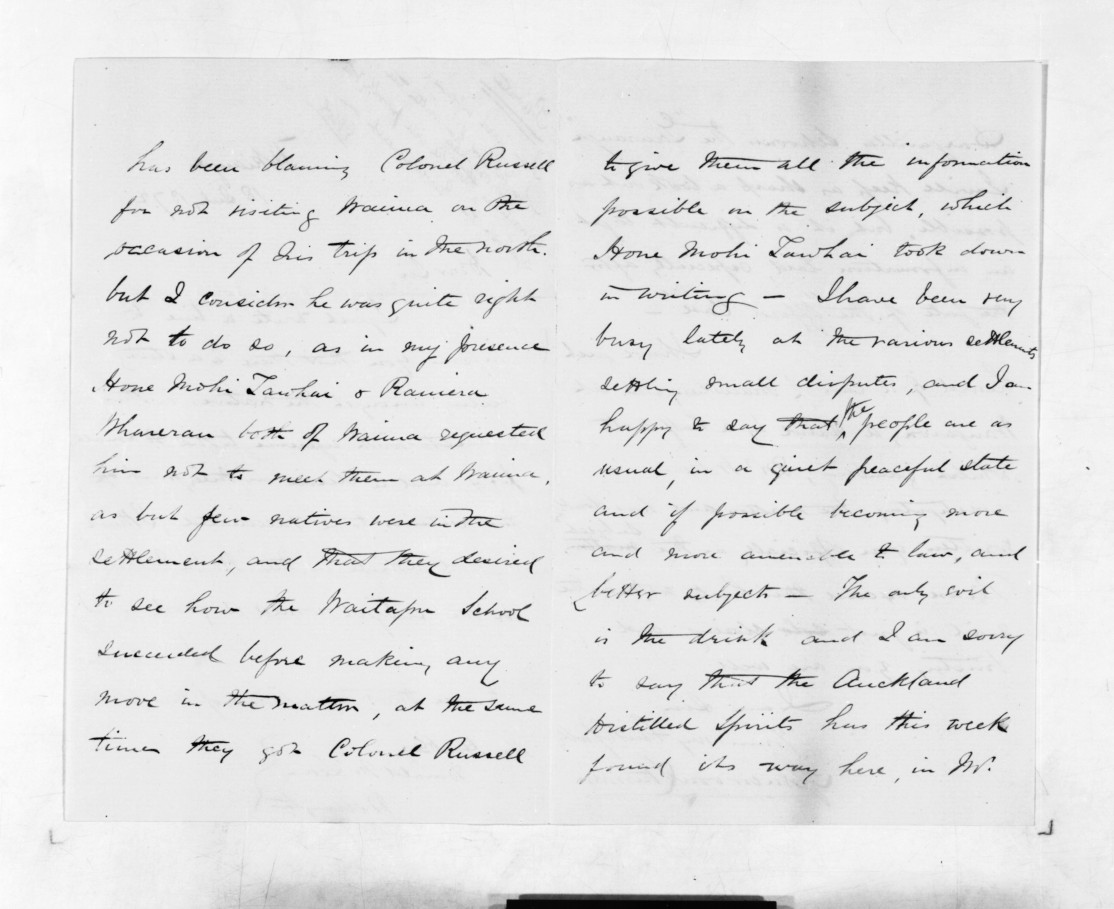 has been blaming Colonel Russell
for not visiting Waima on the
occasion of his trip in the north.
but I consider he was quite right
not to do so, as in my presence
Hone Mohi Tawhai & Raniera
Wharerau both of Waima requested
him not to meet them at Waima,
as but few natives were in the
settlement, and that they desired
to see how the Waitapu School
succeeded before making any
move in the matter, at the same
time they got Colonel Russell
to give them all the information
possible on the subject, which
Hone Mohi Tawhai took down
in writing — I have been very
busy lately at the various settlements
settling small disputes, and I am
happy to say that the people are as
usual, in a quiet peaceful state
and if possible becoming more
and more amenable to law, and
better subjects — The only evil
is the drink and I am sorry
to say that the Auckland
distilled Spirits has this week
found its way here, in Mr.